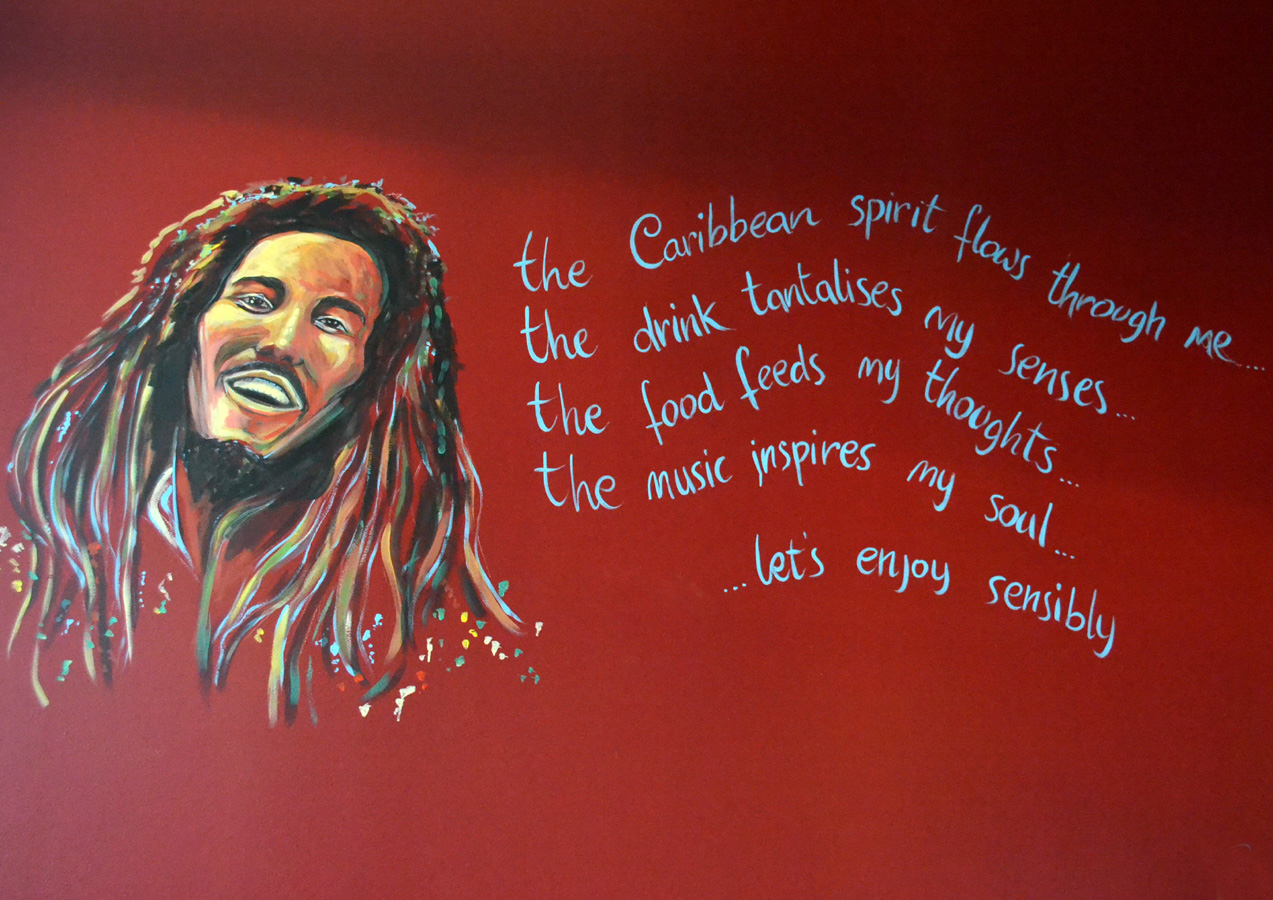 the Caribbean spirit flows through me...
the drink tantalises my senses...
the food feeds my thoughts...
the music inspires my soul...
...let's enjoy sensibly